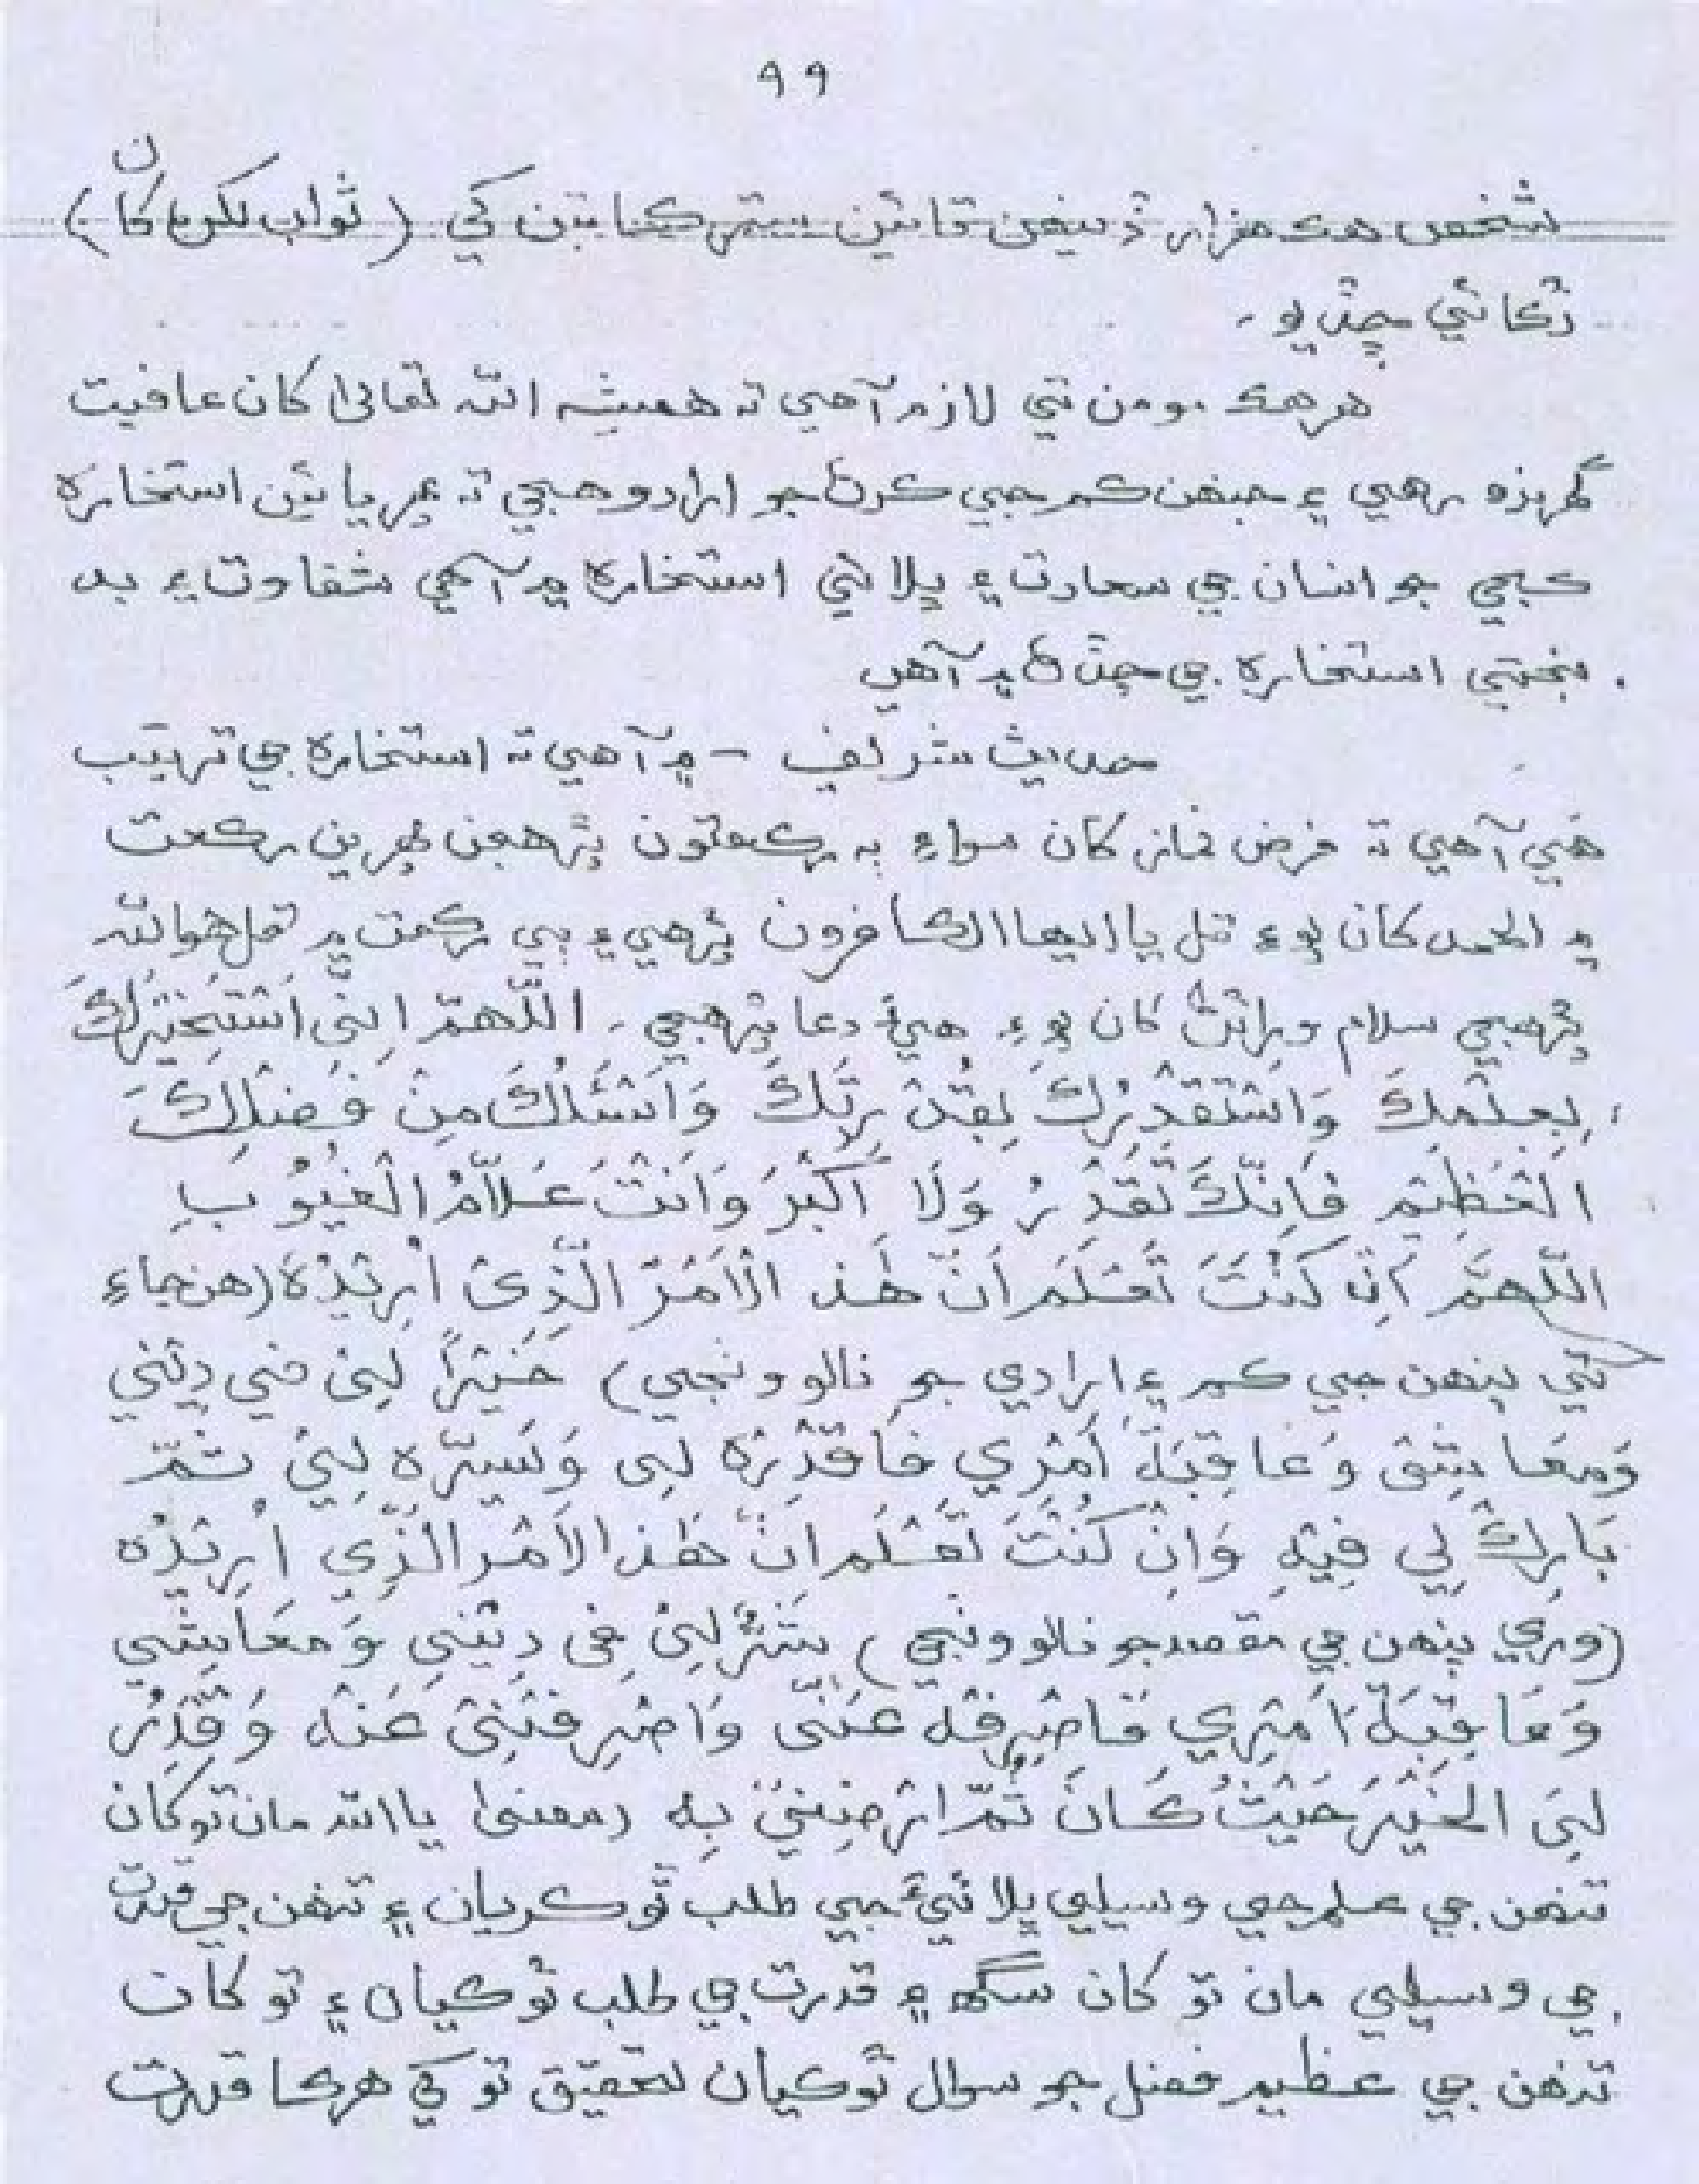 ٩٩
شخص هڪ هزار ڏينهن تائين ستر ڪاتبن کي (ثواب لکڻ کان)
ٿڪائي ڇڏيو.
هر هڪ مومن تي لازم آهي ته هميشه الله تعالى کان عافيت
گهرندو رهي ۽ جنهن ڪم جي ڪرڻ جو ارادو هجي ته پهريائين استخاره
ڪجي جو انسان جي سعادت ۽ ڀلائي استخاره ۾ آهي شقاوت ۽ بد
بختي استخاره جي ڇڏڻ ۾ آهي
حديث شريف - ۾ آهي ته استخاره جي ترتيب
هيءَ آهي ته فرض نماز کان سواءِ به رڪعتون پڙهجن پهرين رڪعت
۾ الحمد کان پوءِ قل يا ايها الكافرون پڙهي ۽ ٻي رڪعت ۾ قل هو الله
پڙهجي سلام ورائڻ کان پوءِ هيءَ دعا پڙهجي. اَللّٰهُمَّ اِنِّي اَسْتَخِيْرُكَ
بِعِلْمِكَ وَاَسْتَقْدِرُكَ بِقُدْرَتِكَ وَاَسْئَلُكَ مِنْ فَضْلِكَ
الْعَظِيْمِ فَاِنَّكَ تَقْدِرُ وَلَا اَكْبَرَ وَاَنْتَ عَلَّامُ الْغُيُوْبِ
اَللّٰهُمَّ اِنْ كُنْتَ تَعْلَمُ اَنَّ هٰذَ الْاَمْرَ الَّذِىْ اُرِيْدُهُ (هن جاءِ
تي پنهن جي ڪم ۽ ارادي جو نالو وٺجي) خَيْرًا لِىْ فِي دِيْنِي
وَمَعَا يِشِىْ وَعَاقِبَةَ اَمْرِي فَاقْدِرْهُ لِى وَيَسِّرْه لِىْ ثُمَّ
بَارِكْ لِي فِيْهِ وَاِنْ كُنْتَ تَعْلَمُ اَنَّ هٰذَ الْاَمْرَ الَّذِي اُرِيْدُه
(وري پنهن جي مقصد جو نالو وٺجي) شَرٌّ لِىْ فِى دِيْنِي وَمَعَا يِشِي
وَعَاقِبَةَ اَمْرِي فَاصْرِفْهُ عَنِّى وَاصْرِفْنِىْ عَنْه وَقْدِرْ
لِىَ الْخَيْرَ حَيْثُ كَانَ ثُمَّ ارْضِنِيْ بِه (معنىٰ يا الله مان تو کان
تنهن جي علم جي وسيلي ڀلائيءَ جي طلب ٿو ڪريان ۽ تنهن جي قدرت
جي وسيلي مان تو کان سگهه ۽ قدرت جي طلب ٿو ڪيان ۽ تو کان
تنهن جي عظيم فضل جو سوال ٿو ڪيان تحقيق تو کي هرڪا قدرت